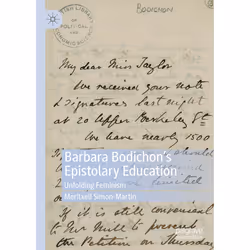 BODICHON
BRITISH LIBRARY
OF POLITICAL
AND
ECONOMIC
My dear Miss Taylor
We received your note
& signatures last night
at 20 Upper Berkeley St
We have nearly 1500
Barbara Bodichon's
Epistolary Education
Unfolding Feminism
Meritxell Simon-Martin
If it is still convenient
to Mr Mill to
the Petition on Thursday
palgrave